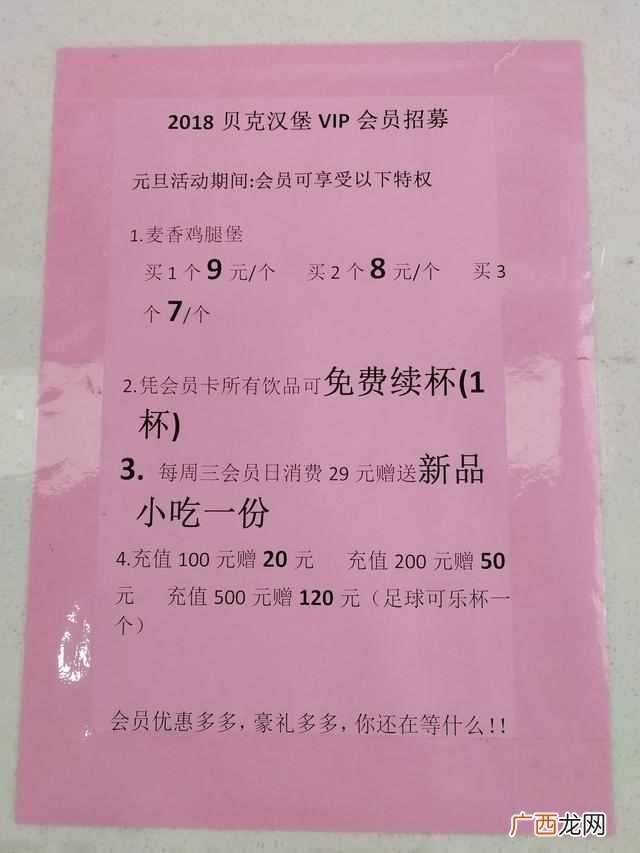 2018 贝克汉堡 VIP 会员招募
元旦活动期间:会员可享受以下特权
1.麦香鸡腿堡
买 1 个 9 元/个 买 2 个 8 元/个 买 3
个 7/个
2.凭会员卡所有饮品可免费续杯(1
杯)
3. 每周三会员日消费 29 元赠送新品
小吃一份
4.充值 100 元赠 20 元 充值 200 元赠 50
元 充值 500 元赠 120 元（足球可乐杯一
个）
会员优惠多多，豪礼多多，你还在等什么!!
广西龙网